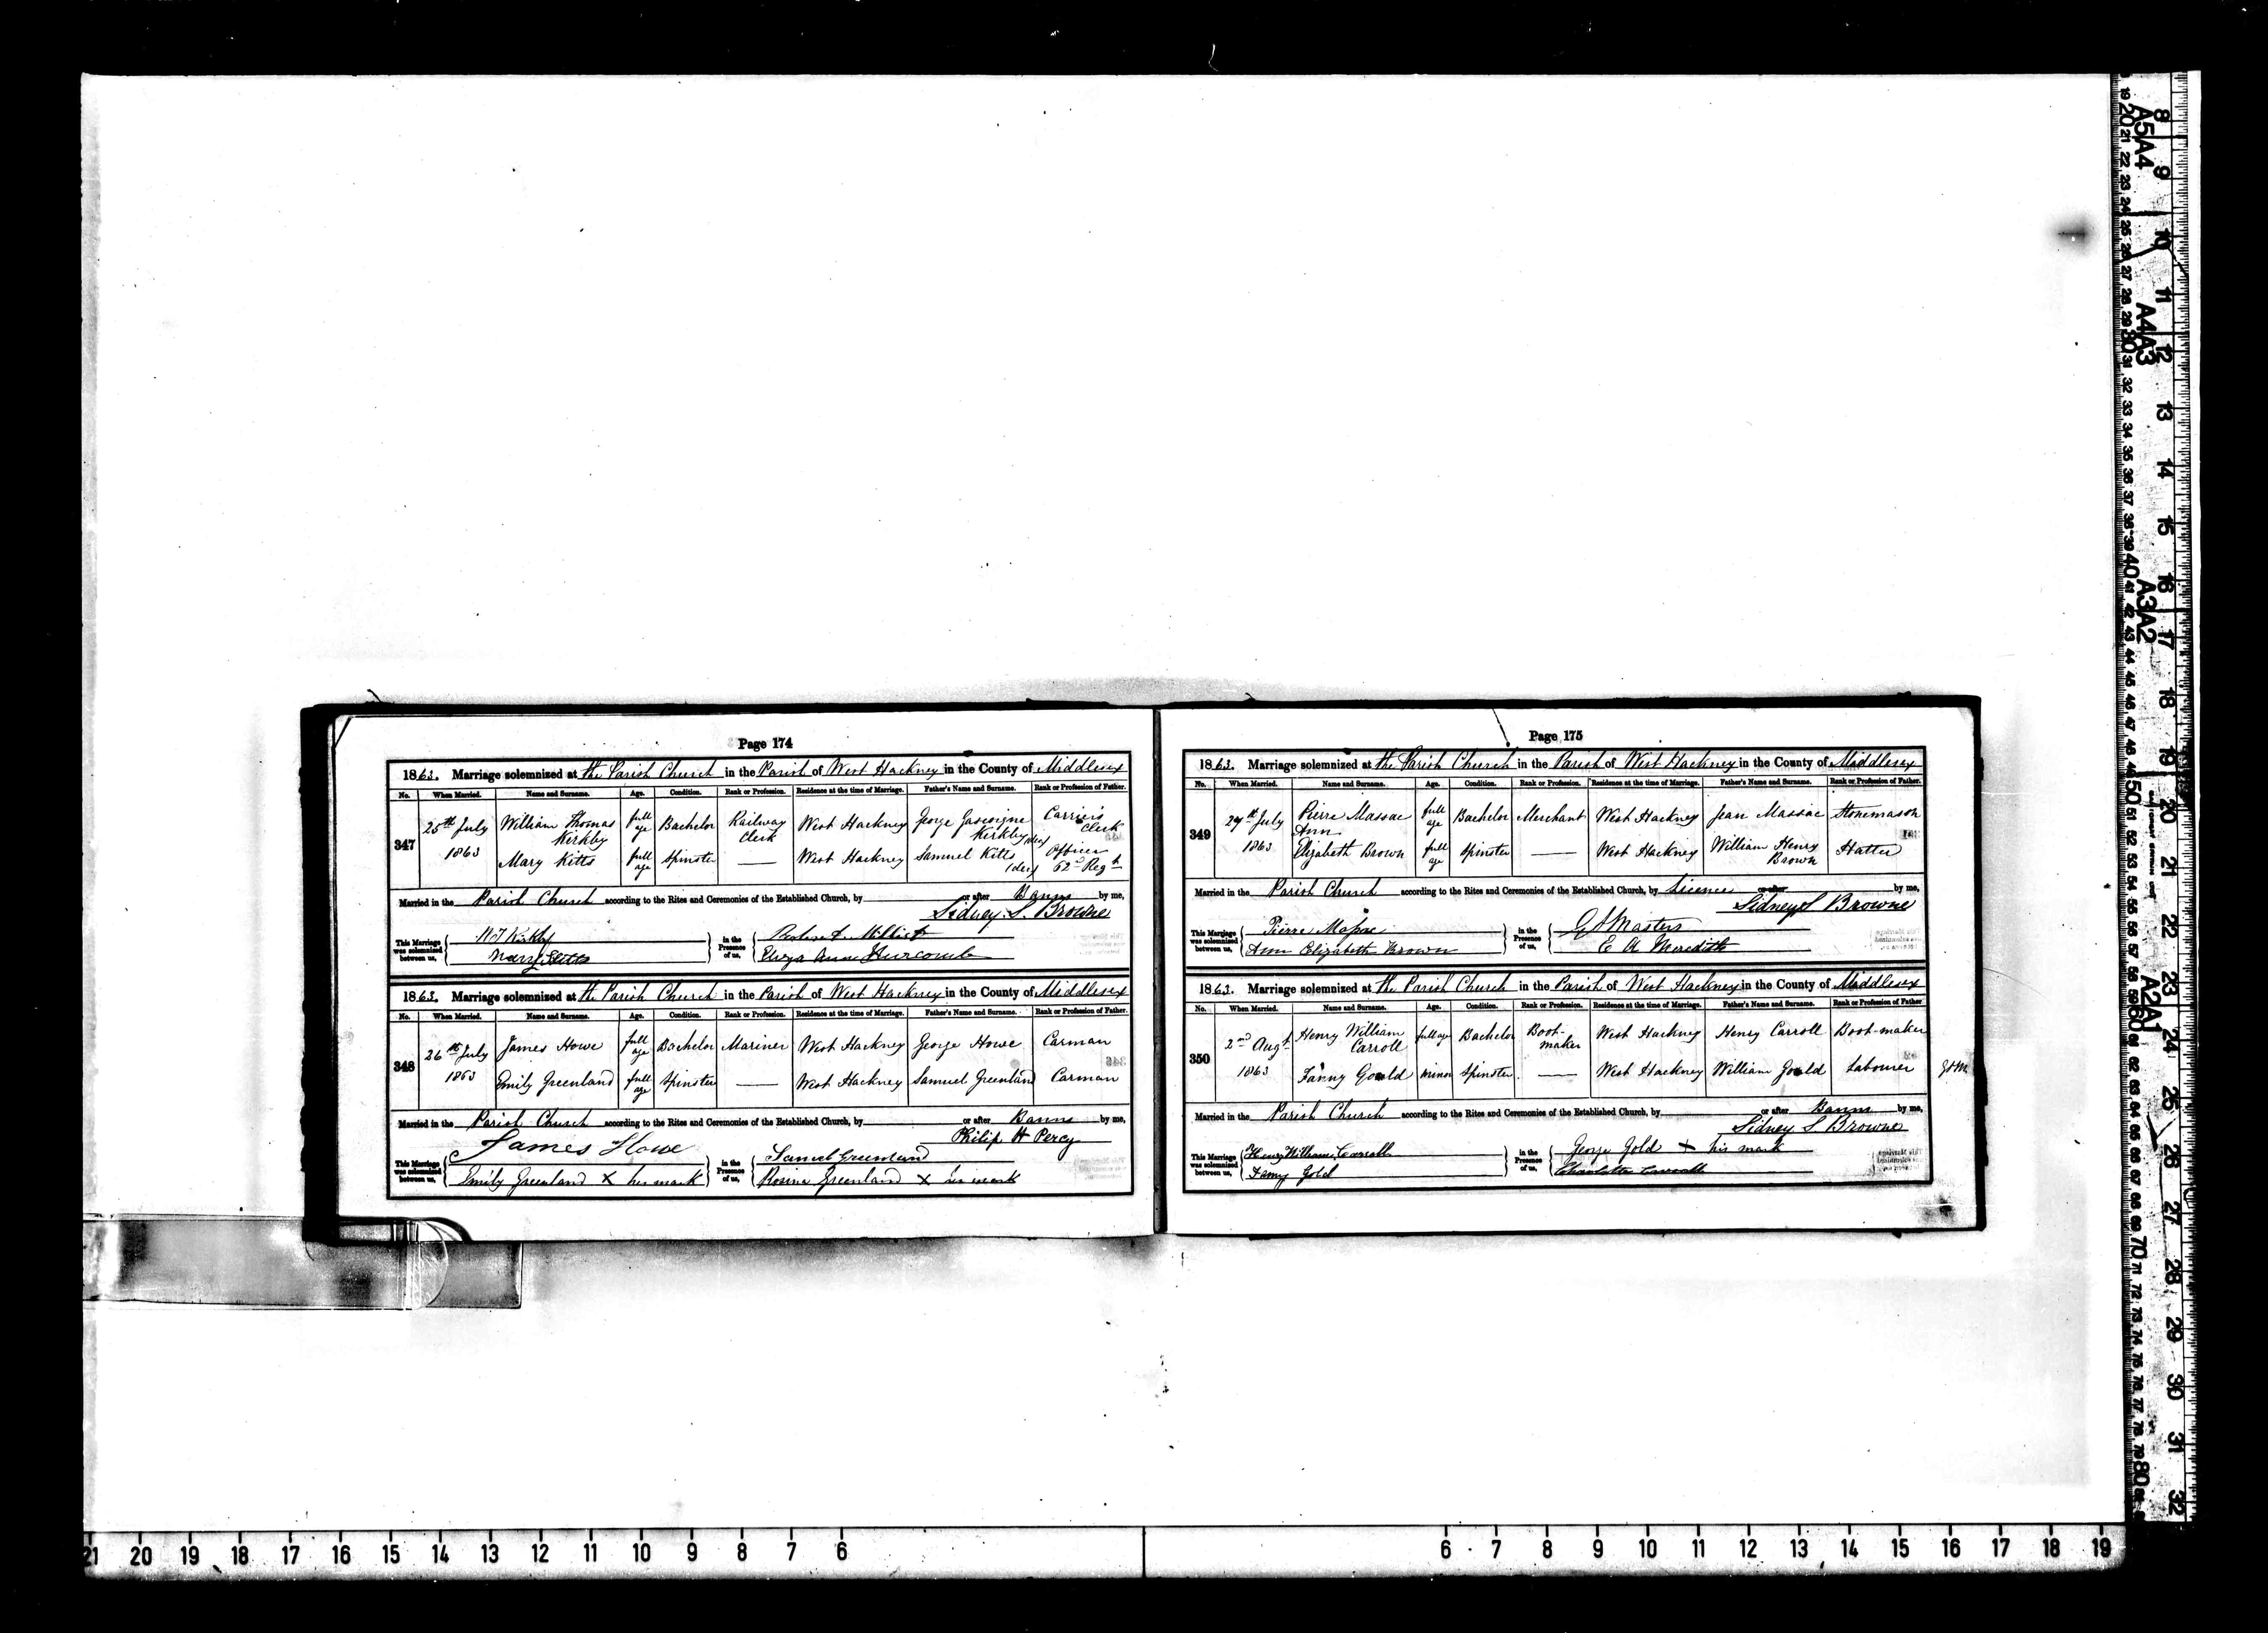 Page 174
1863. Marriage solemnized at the Parish Church in the Parish of West Hackney in the County of Middlesex
No. When Married. Name and Surname. Age. Condition. Rank or Profession. Residence at the time of Marriage. Father's Name and Surname. Rank or Profession of Father.
347 25th July 1863 William Thomas Kirkby full age Bachelor Railway Clerk West Hackney George Gascoigne Kirkby Carrier's Clerk
Mary Kitts full age Spinster — West Hackney Samuel Kitts Officer 62nd Regt
Married in the Parish Church according to the Rites and Ceremonies of the Established Church, by or after Banns by me,
Sidney S. Browne
This Marriage was solemnized between us, W T Kirkby
Mary Kitts
in the Presence of us,
Eliza Anne Hurcomb
1863. Marriage solemnized at the Parish Church in the Parish of West Hackney in the County of Middlesex
No. When Married. Name and Surname. Age. Condition. Rank or Profession. Residence at the time of Marriage. Father's Name and Surname. Rank or Profession of Father.
348 26th July 1863 James Howe full age Bachelor Mariner West Hackney George Howe Carman
Emily Greenland full age Spinster — West Hackney Samuel Greenland Carman
Married in the Parish Church according to the Rites and Ceremonies of the Established Church, by or after Banns by me,
Philip H Percy
This Marriage was solemnized between us, James Howe
Emily Greenland X her mark
in the Presence of us, Samuel Greenland
Rosina Greenland X her mark
Page 175
1863. Marriage solemnized at the Parish Church in the Parish of West Hackney in the County of Middlesex
No. When Married. Name and Surname. Age. Condition. Rank or Profession. Residence at the time of Marriage. Father's Name and Surname. Rank or Profession of Father.
349 29th July 1863 Pierre Massac full age Bachelor Merchant West Hackney Jean Massac Stonemason
Ann Elizabeth Brown full age Spinster — West Hackney William Henry Brown Hatter
Married in the Parish Church according to the Rites and Ceremonies of the Established Church, by Licence or after by me,
Sidney S Browne
This Marriage was solemnized between us, Pierre Massac
Ann Elizabeth Brown
in the Presence of us, G J Masters
E A Meredith
1863. Marriage solemnized at the Parish Church in the Parish of West Hackney in the County of Middlesex
No. When Married. Name and Surname. Age. Condition. Rank or Profession. Residence at the time of Marriage. Father's Name and Surname. Rank or Profession of Father
350 2nd Augt 1863 Henry William Carroll full age Bachelor Boot-maker West Hackney Henry Carroll Boot-maker
Fanny Gould minor Spinster. — West Hackney William Gould Labourer
Married in the Parish Church according to the Rites and Ceremonies of the Established Church, by or after Banns by me,
Sidney S Browne
This Marriage was solemnized between us, Henry William Carroll
Fanny Gold
in the Presence of us, George Gold X his mark
Charlotte Carroll
21 20 19 18 17 16 15 14 13 12 11 10 9 8 7 6
6 7 8 9 10 11 12 13 14 15 16 17 18 19
A5A4
A4A3
A3A2
A2A1
8 9 10 11 12 13 14 15 16 17 18 19 20 21 22 23 24 25 26 27 28 29 30 31 32